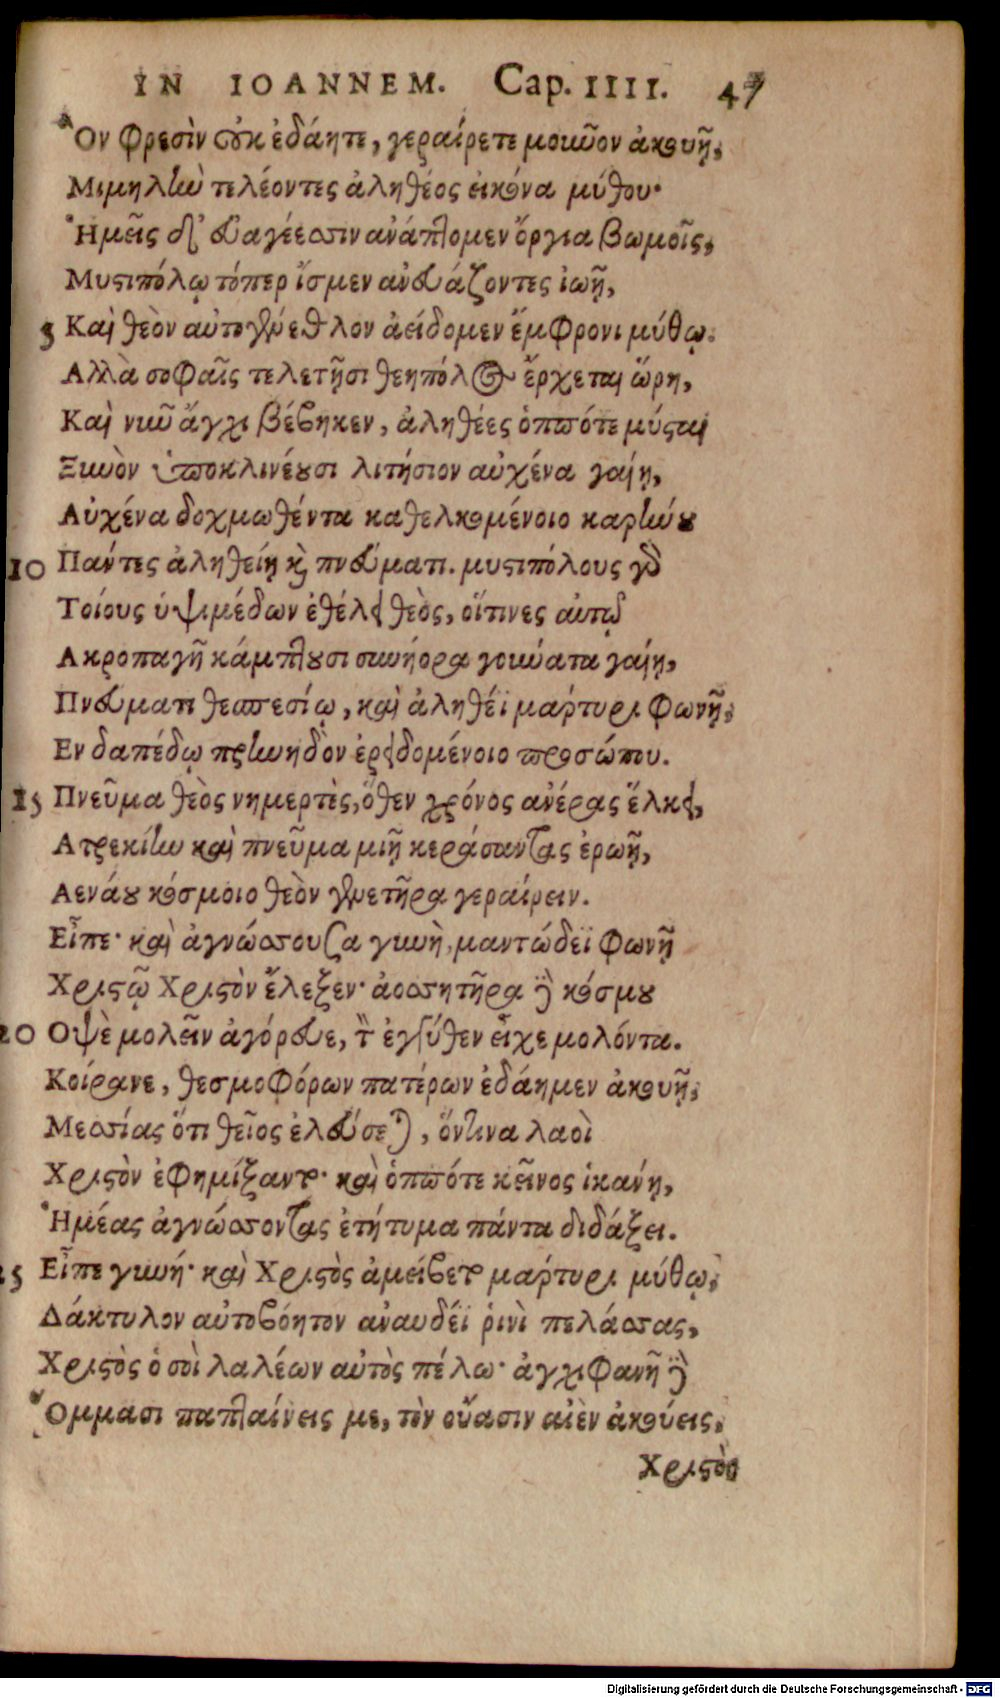 IN IOANNEM. Cap. IIII. 47
Ὃν φρεσὶν οὐκ ἐδάητε, γεραίρετε μοῦνον ἀκουῇ,
Μιμηλὴν τελέοντες ἀληθέος εἰκόνα μύθου·
Ἡμεῖς δ' εὐαγέεσσιν ἀνάπτομεν ὄργια βωμοῖς,
Μυστιπόλῳ τόπερ ἴσμεν ἀνευάζοντες ἰωῇ,
5 Καὶ θεὸν αὐτογένεθλον ἀείδομεν ἔμφρονι μύθῳ.
Αλλὰ σοφαῖς τελετῇσι θεηπόλος ἔρχεται ὥρη,
Καὶ νῦν ἄγχι βέβηκεν, ἀληθέες ὁππότε μύσται
Ξυνὸν ὑποκλινέουσι λιτήσιον αὐχένα γαίῃ,
Αὐχένα δοχμωθέντα καθελκομένοιο καρήνου
10 Πάντες ἀληθείῃ καὶ πνεύματι. μυστιπόλους γὰρ
Τοίους ὑψιμέδων ἐθέλει θεὸς, οἵτινες αὐτῷ
Ακροπαγῆ κάμπτουσι συνήορα γούνατα γαίῃ,
Πνεύματι θεσπεσίῳ, καὶ ἀληθέϊ μάρτυρι φωνῇ,
Εν δαπέδῳ πρηνηδὸν ἐρειδομένοιο προσώπου.
15 Πνεῦμα θεὸς νημερτὲς, ὅθεν χρόνος ἀνέρας ἕλκει,
Ατρεκίην καὶ πνεῦμα μιῇ κεράσαντας ἐρωῇ,
Αενάου κόσμοιο θεὸν γενετῆρα γεραίρειν.
Εἶπε· καὶ ἀγνώσσουσα γυνὴ, μαντώδεϊ φωνῇ
Χριστῷ Χριστὸν ἔλεξεν· ἀοσσητῆρα δὲ κόσμου
20 Οψὲ μολεῖν ἀγόρευε, τὸν ἐγγύθεν εἶχε μολόντα.
Κοίρανε, θεσμοφόρων πατέρων ἐδάημεν ἀκουῇ,
Μεσσίας ὅτι θεῖος ἐλεύσεται, ὅντινα λαοὶ
Χριστὸν ἐφημίξαντο· καὶ ὁππότε κεῖνος ἱκάνῃ,
Ἡμέας ἀγνώσσοντας ἐτήτυμα πάντα διδάξει.
25 Εἶπε γυνή· καὶ Χριστὸς ἀμείβετο μάρτυρι μύθῳ,
Δάκτυλον αὐτοβόητον ἀναυδέϊ ῥινὶ πελάσσας,
Χριστὸς ὁ σοὶ λαλέων αὐτὸς πέλω· ἀγχιφανῆ δὲ
Ὄμμασι παπταίνεις με, τὸν οὔασιν αἰὲν ἀκούεις,
Χριστὸς
Digitalisierung gefördert durch die Deutsche Forschungsgemeinschaft - DFG